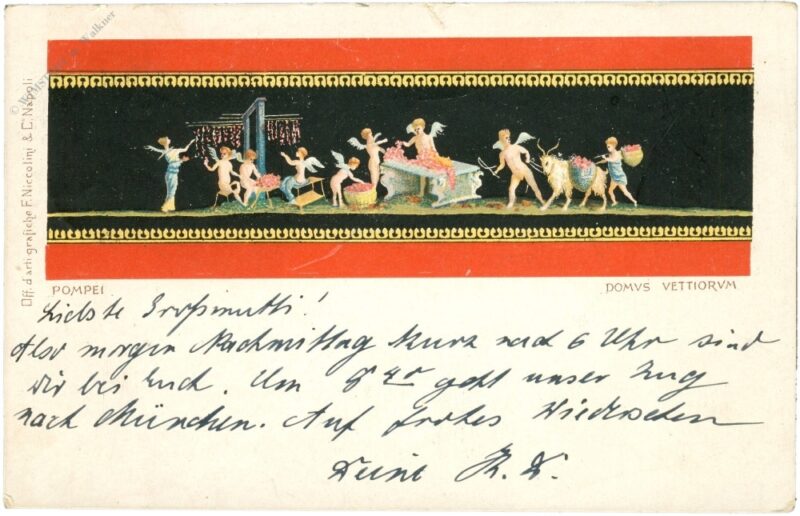 Off. d'arti grafiche F. Niccolini & Cº Napoli
POMPEI
DOMVS VETTIORVM
Liebste Großmutti!
Also morgen Nachmittag kurz nach 6 Uhr sind
wir bei Euch. Um 8 40 geht unser Zug
nach München. Auf frohes Wiedersehen
Deine